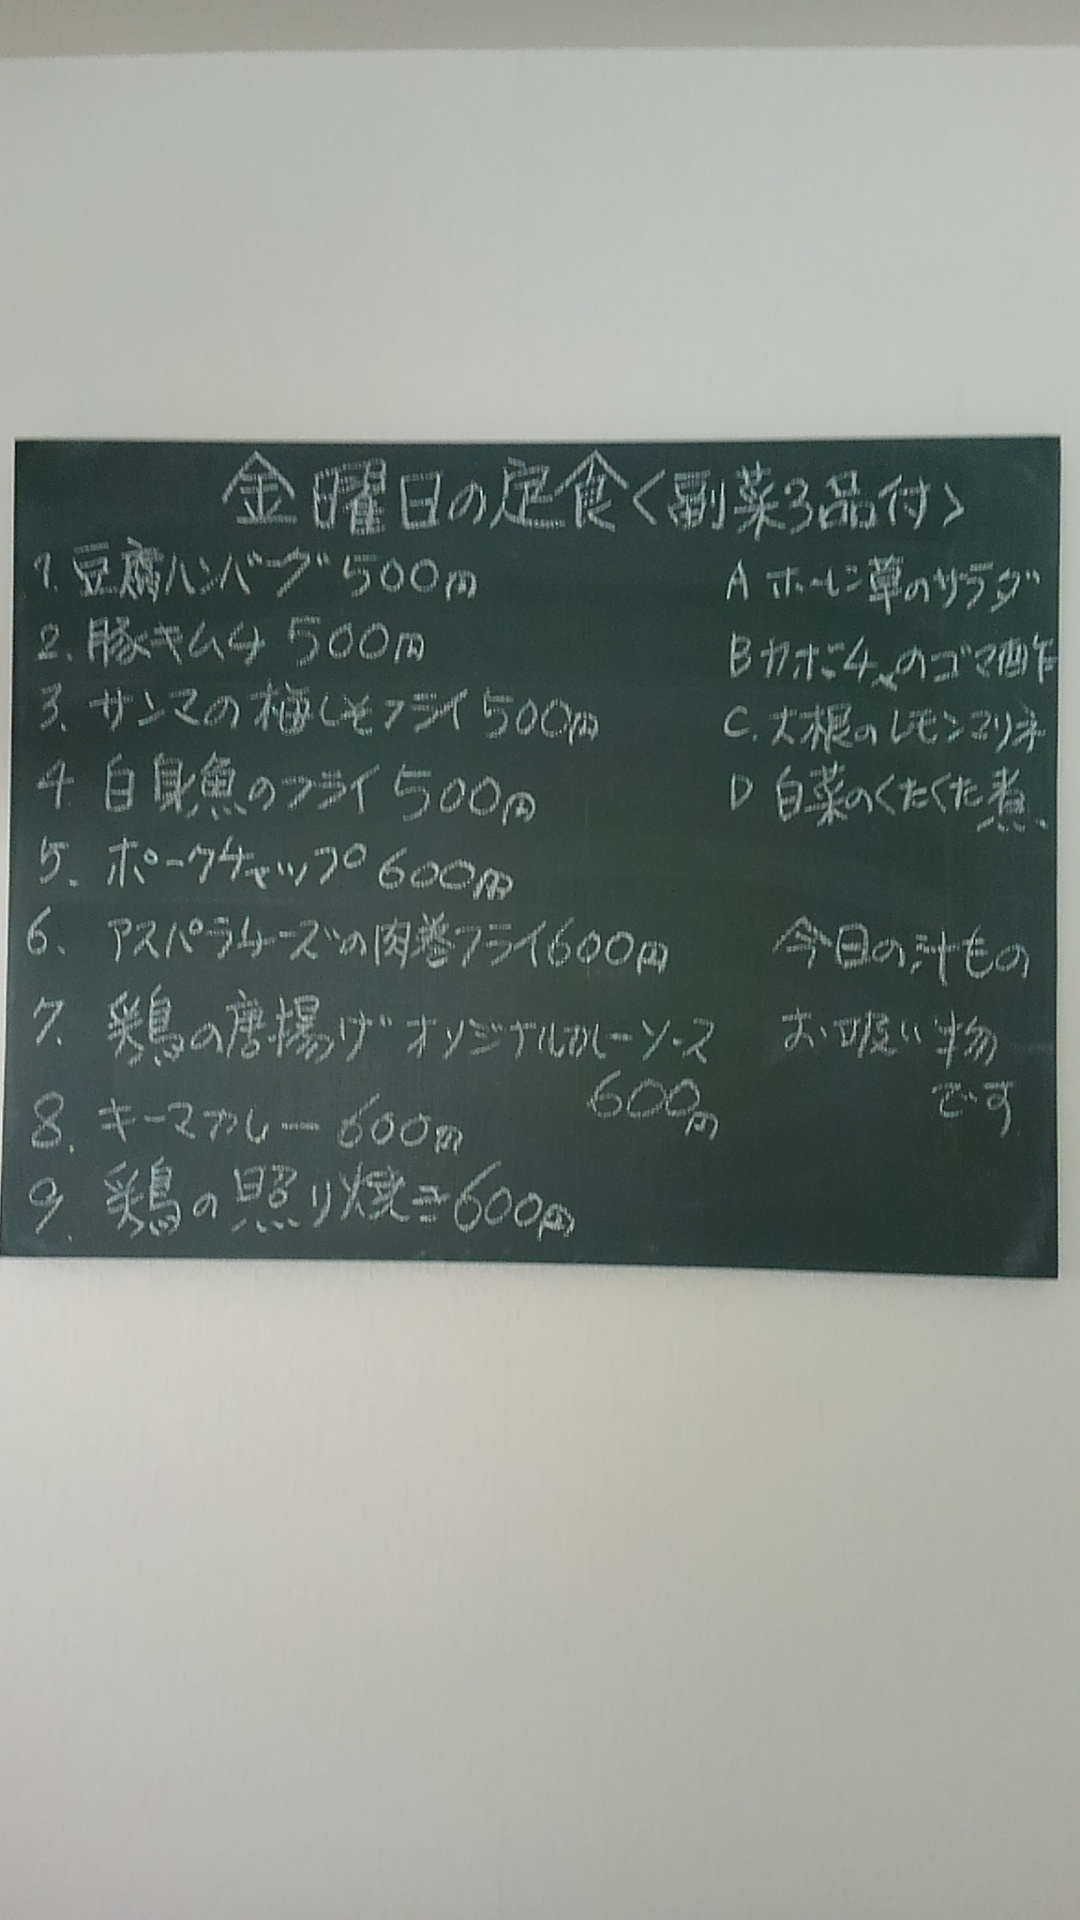 金曜日の定食〈副菜3品付〉
1. 豆腐ハンバーグ 500円
2. 豚キムチ 500円
3. サンマの梅しそフライ 500円
4. 白身魚のフライ 500円
5. ポークチャップ 600円
6. アスパラチーズの肉巻フライ 600円
7. 鶏の唐揚げ オリジナルカレーソース
600円
8. キーマカレー 600円
9. 鶏の照り焼き 600円
A ホーレン草のサラダ
B カボチャのゴマ酢
C.大根のレモンマリネ
D 白菜のくたくた煮
今日の汁もの
お吸い物
です